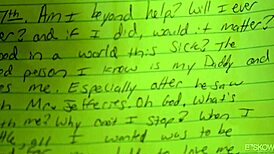 7th, Am I beyond help? Will I ever
er? and if I did, would it matter?
ood in a world this sick? The
od person I know is my Daddy and
es me. Especially after he saw
h Mrs. Jefferies. Oh God, what's
th me? Why can't I stop? When I
le, all I wanted was to be
to love me
E*SKOW